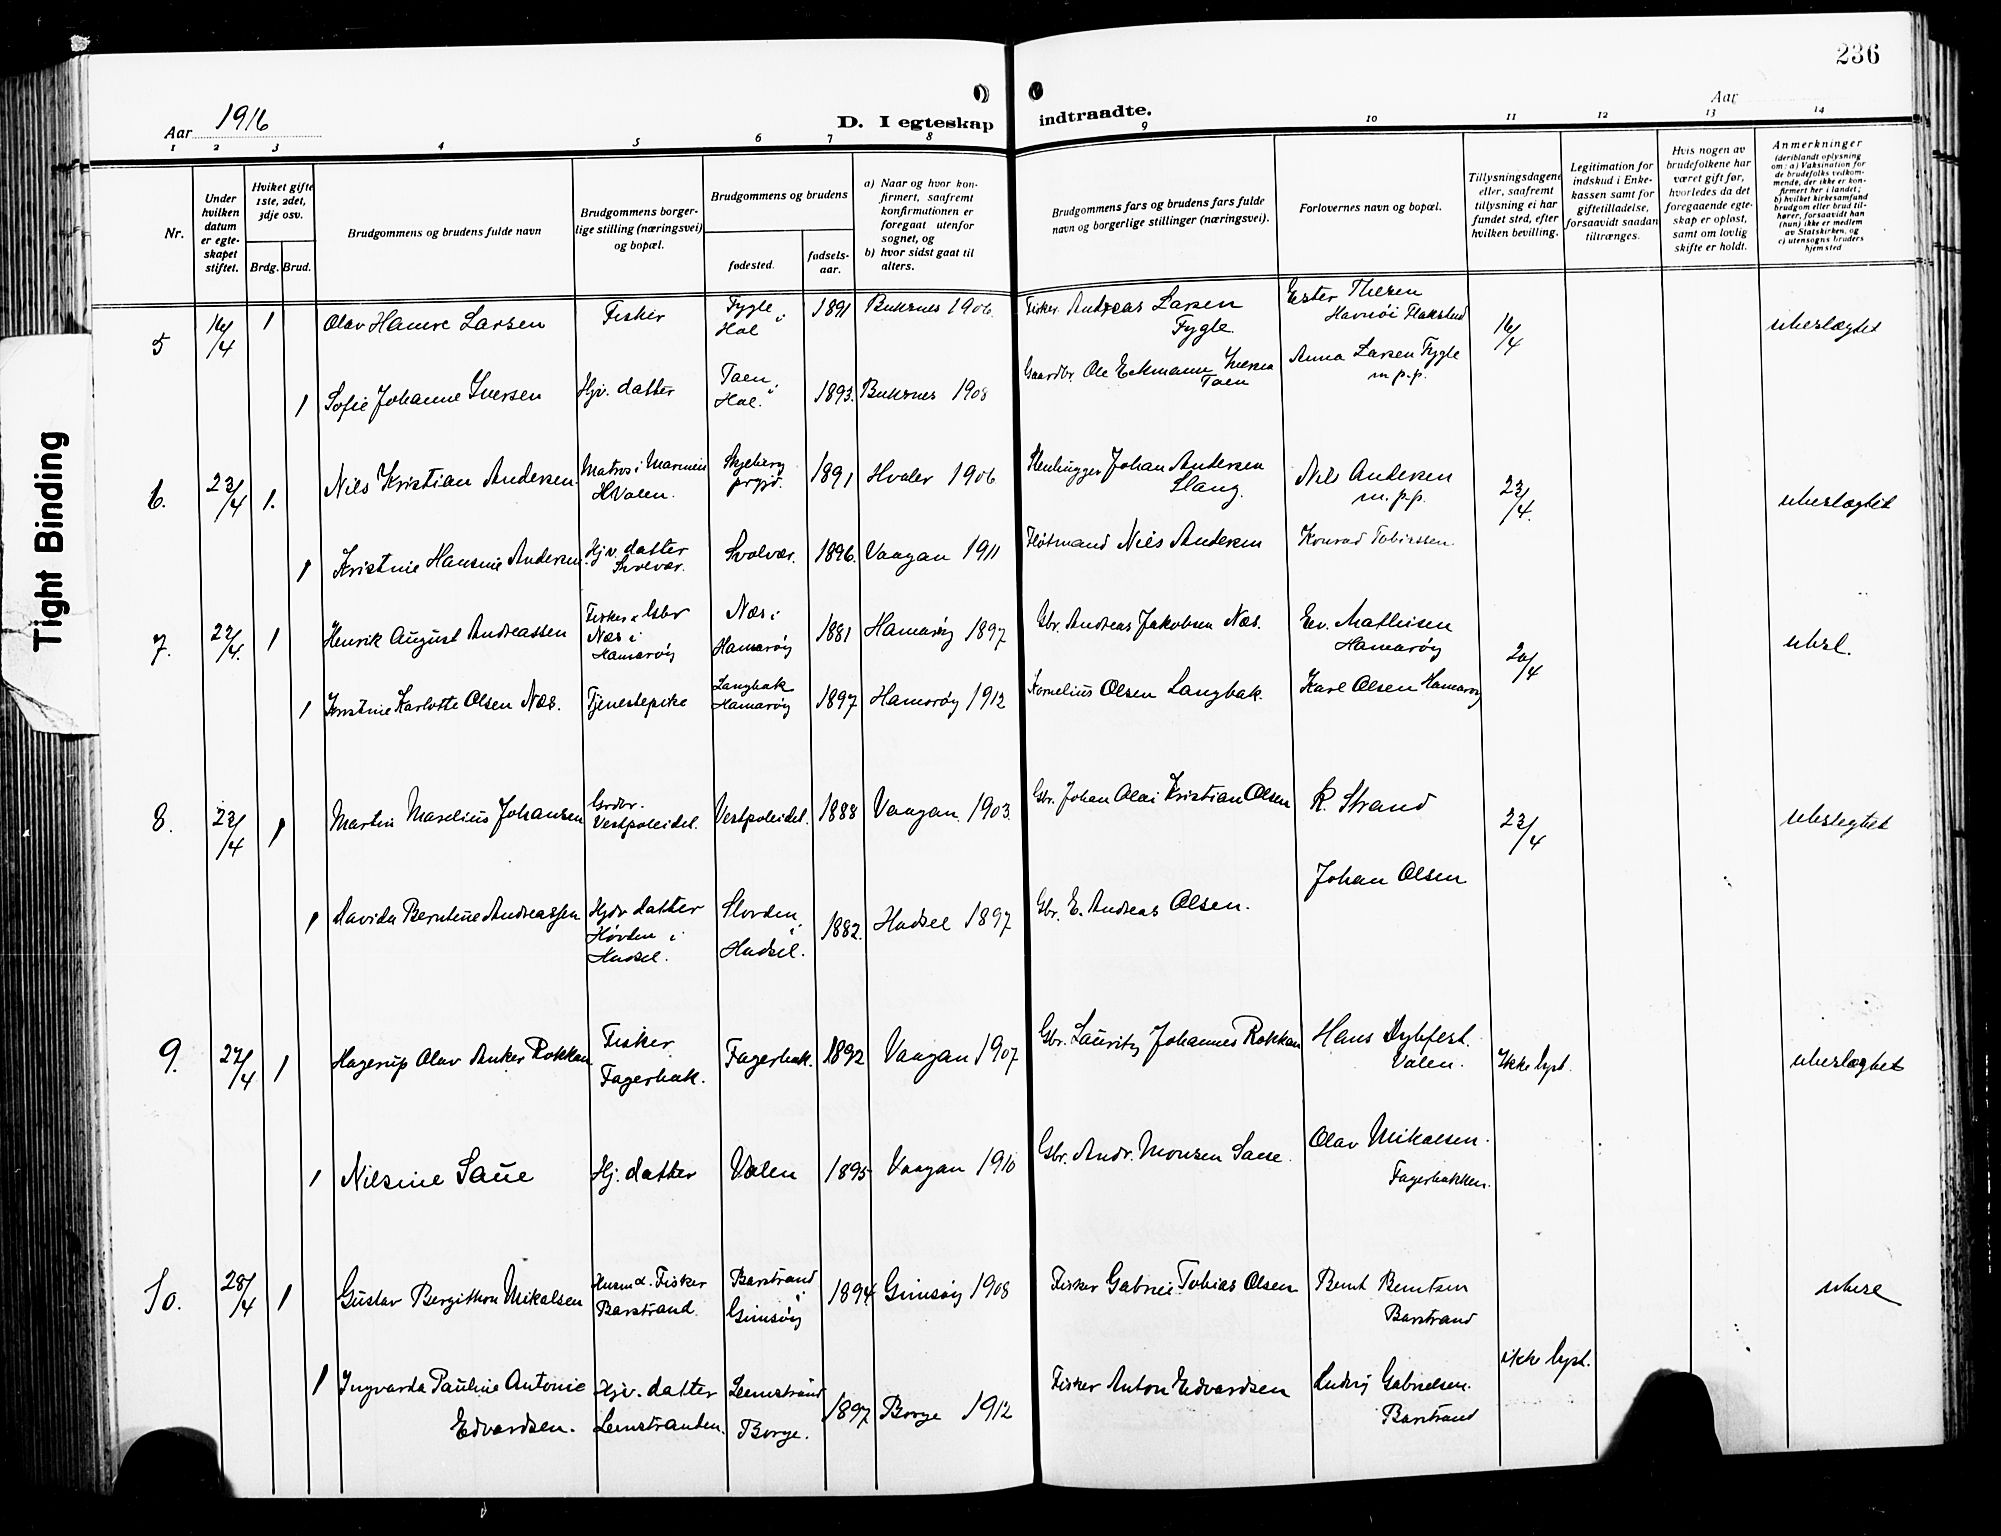 236
Aar 1916
D. I egteskap indtraadte.
Aar
1 2 3 4 5 6 7 8 9 10 11 12 13 14
Nr.
Under hvilken datum er egteskapet stiftet.
Hviket gifte 1ste, 2det, 3dje osv.
Brdg. Brud.
Brudgommens og brudens fulde navn
Brudgommens borgerlige stilling (næringsvei) og bopæl.
Brudgommens og brudens
fødested.
fødselsaar.
a) Naar og hvor konfirmert, saafremt konfirmationen er foregaat utenfor sognet, og
b) hvor sidst gaat til alters.
Brudgommens fars og brudens fars fulde navn og borgerlige stillinger (næringsvei).
Forlovernes navn og bopæl.
Tillysningsdagene eller, saafremt tillysning ei har fundet sted, efter hvilken bevilling.
Legitimation for indskud i Enkekassen samt for giftetilladelse, forsaavidt saadan tiltrænges.
Hvis nogen av brudefolkene har været gift før, hvorledes da det foregaaende egteskap er opløst, samt om lovlig skifte er holdt.
Anmerkninger
(deriblandt oplysning om: a) Vaksination for de brudefolks vedkommende, der ikke er konfirmert her i landet; b) hvilket kirkesamfund brudgom eller brud tilhører, forsaavidt han (hun) ikke er medlem av Statskirken, og c) utensogns bruders hjemsted
5 16/4 1 Olav Hamre Larsen Fisker Fygle i Hol 1891 Buksnes 1906. Fisker Andreas Larsen Fygle. Ester Thesen Havnøi Flakstad 16/4 ubeslægtet
1 Sofie Johanne Iversen Hjv. datter Taen i Hol. 1893. Buksnes 1908 Gaardbr. Ole Eckmann Iversen Taen Anna Larsen Fygle m.p.p.
6. 23/4 1. Nils Kristian Andersen. Matros i Marinen Hvalen. Skjeberg prgjd. 1891 Hvaler 1906 Stenhugger Johan Andersen Slang. Nils Andersen m.p.p. 23/4. ubeslægtet
1 Kristine Hansine Andersen Hjv. datter Svolvær. Svolvær. 1896. Vaagan 1911 Flotmand Nils Andersen Konrad Tobiassen
7. 22/4. 1 Henrik August Andreassen Fisker & Gbr Næs i Hamarøy Næs i Hamarøy 1881 Hamarøy 1897 Gbr. Andreas Jakobsen Næs. Edv. Mathisen Hamarøy 20/4 ubesl.
1 Kristine Karlotte Olsen Næs. Tjenestepike Langbak Hamarøy 1897 Hamarøy 1912 Kornelius Olsen Langbak. Karl Olsen Hamarøy
8. 23/4 1 Martin Marelius Johansen Grdbr. Vestpoleidet. Vestpoleidet. 1888 Vaagan. 1903. Gbr. Johan Olai Kristian Olsen R. Strand 23/4 ubeslegtet
1 Davida Berntine Andreassen Hjdv datter Hovden i Hadsel. Hovden i Hadsel. 1882. Hadsel 1897 Gbr. E. Andreas Olsen. Johan Olsen
9. 27/4 1 Hagerup Olav Anker Rokkan Fisker Fagerbak. Fagerbak. 1892 Vaagan 1907 Gbr. Lauritz Johannes Rokkan Hans Dybfest Valen. Ikke lyst. ubeslægtet
1 Nilsine Saue Hj. datter Valen 1895 Vaagan 1910 Gbr. Andr. Monsen Saue. Olav Mikalsen. Fagerbakken.
10. 28/4 1 Gustav Bergithon Mikalsen Husm & Fisker Barstrand. Barstrand i Gimsøy 1894 Gimsøy 1908 Fisker Gabriel Tobias Olsen Bernt Berntsen Barstrand ikke lyst. ubesl
1 Ingvarda Pauline Antonie Edvardsen. Hjv. datter Leenstranden. Leenstrand Borge. 1897 Borge 1912 Fisker Anton Edvardsen Ludvig Gabrielsen. Barstrand
Tight Binding